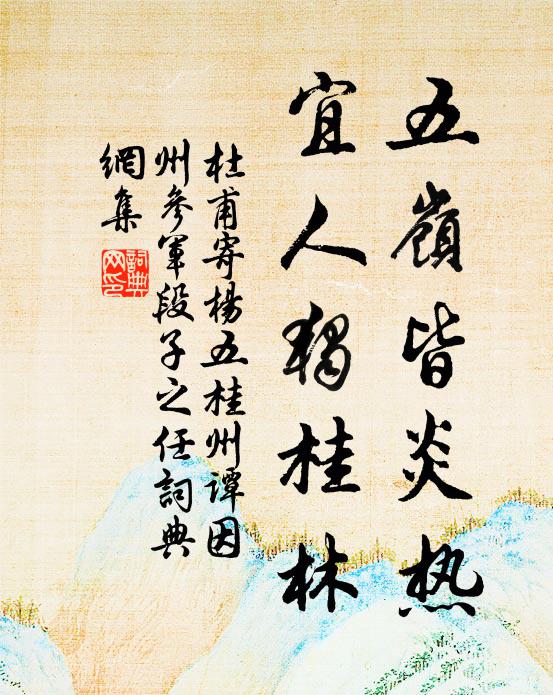 五嶺皆炎热
宜人獨桂林
杜甫寄楊五桂州譚因
州參軍段子之任詞典
網集
詞典网印